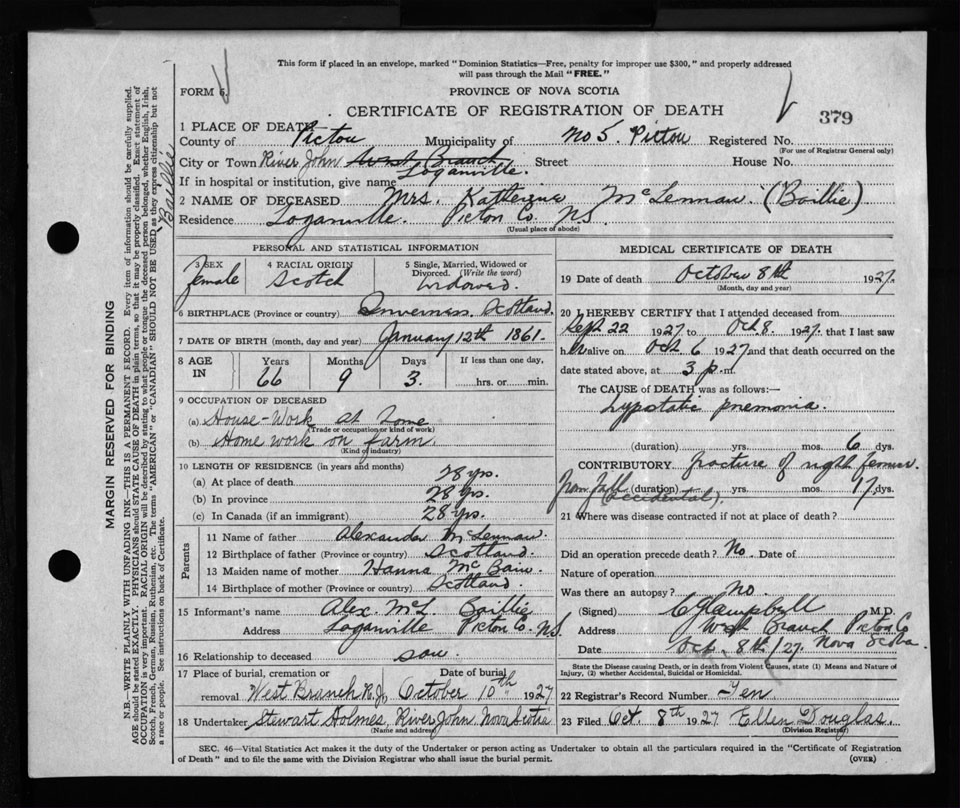 This form if placed in an envelope, marked "Dominion Statistics—Free, penalty for improper use $300," and properly addressed
will pass through the Mail "FREE."
FORM 6.
PROVINCE OF NOVA SCOTIA
CERTIFICATE OF REGISTRATION OF DEATH
379
1 PLACE OF DEATH
County of Pictou Municipality of No 5. Pictou Registered No.
(For use of Registrar General only)
City or Town River John West Branch Loganville. Street House No.
If in hospital or institution, give name
2 NAME OF DECEASED Mrs. Katherine McLennan (Baillie)
Residence Loganville. Pictou Co. N.S.
(Usual place of abode)
PERSONAL AND STATISTICAL INFORMATION
3 SEX Female
4 RACIAL ORIGIN Scotch
5 Single, Married, Widowed or Divorced. (Write the word) Widowed.
6 BIRTHPLACE (Province or country) Inverness. Scotland.
7 DATE OF BIRTH (month, day and year) January 12th 1861.
8 AGE IN Years 66 Months 9 Days 3. If less than one day, ....hrs. or ....min.
9 OCCUPATION OF DECEASED
(a) House-Work at home
(Trade or occupation or kind of work)
(b) Home work on farm.
(Kind of industry)
10 LENGTH OF RESIDENCE (in years and months)
(a) At place of death 28 yrs.
(b) In province 28 yrs.
(c) In Canada (if an immigrant) 28 yrs.
Parents
11 Name of father Alexander McLennan.
12 Birthplace of father (Province or country) Scotland.
13 Maiden name of mother Hanna McBain.
14 Birthplace of mother (Province or country) Scotland.
15 Informant's name Alex. McL. Baillie
Address Loganville Pictou Co. N.S.
16 Relationship to deceased son.
17 Place of burial, cremation or removal West Branch R.J. Date of burial October 10th 1927
18 Undertaker Stewart Holmes, River John, Nova Scotia
(Name and address)
MEDICAL CERTIFICATE OF DEATH
19 Date of death October 8th 1927.
(Month, day and year)
20 I HEREBY CERTIFY that I attended deceased from
Sept 22 1927 to Oct 8. 1927. that I last saw
h er alive on Oct. 6 1927 and that death occurred on the
date stated above, at 3 p.m.
The CAUSE of DEATH was as follows:—
Hypostatic pnemonia.
(duration) yrs. mos. 6 dys.
CONTRIBUTORY fracture of right femur.
from fall (accidental). (duration) yrs. mos. 17 dys.
21 Where was disease contracted if not at place of death?
Did an operation precede death? No. Date of
Nature of operation
Was there an autopsy? No.
(Signed) M.D.
Address West Branch Pictou Co
Date Oct. 8th/27. Nova Scotia.
State the Disease causing Death, or in death from Violent Causes, state (1) Means and Nature of
Injury, (2) whether Accidental, Suicidal or Homicidal.
22 Registrar's Record Number Ten
23 Filed Oct. 8th 1927 Ellen Douglas.
(Division Registrar)
SEC. 46—Vital Statistics Act makes it the duty of the Undertaker or person acting as Undertaker to obtain all the particulars required in the "Certificate of Registration
of Death" and to file the same with the Division Registrar who shall issue the burial permit. (OVER)
MARGIN RESERVED FOR BINDING
N.B.—WRITE PLAINLY WITH UNFADING INK—THIS IS A PERMANENT RECORD. Every item of information should be carefully supplied.
AGE should be stated EXACTLY. PHYSICIANS should STATE CAUSE OF DEATH in plain terms, so that it may be properly classified. Exact statement of
OCCUPATION is very important. RACIAL ORIGIN will be described by stating to what people or tongue the deceased person belonged, whether English, Irish,
Scotch, French, German, Russian, Ruthenian, etc. The terms "AMERICAN" or "CANADIAN" SHOULD NOT BE USED as they express citizenship but not
a race or people. See instructions on back of Certificate.
Baillie